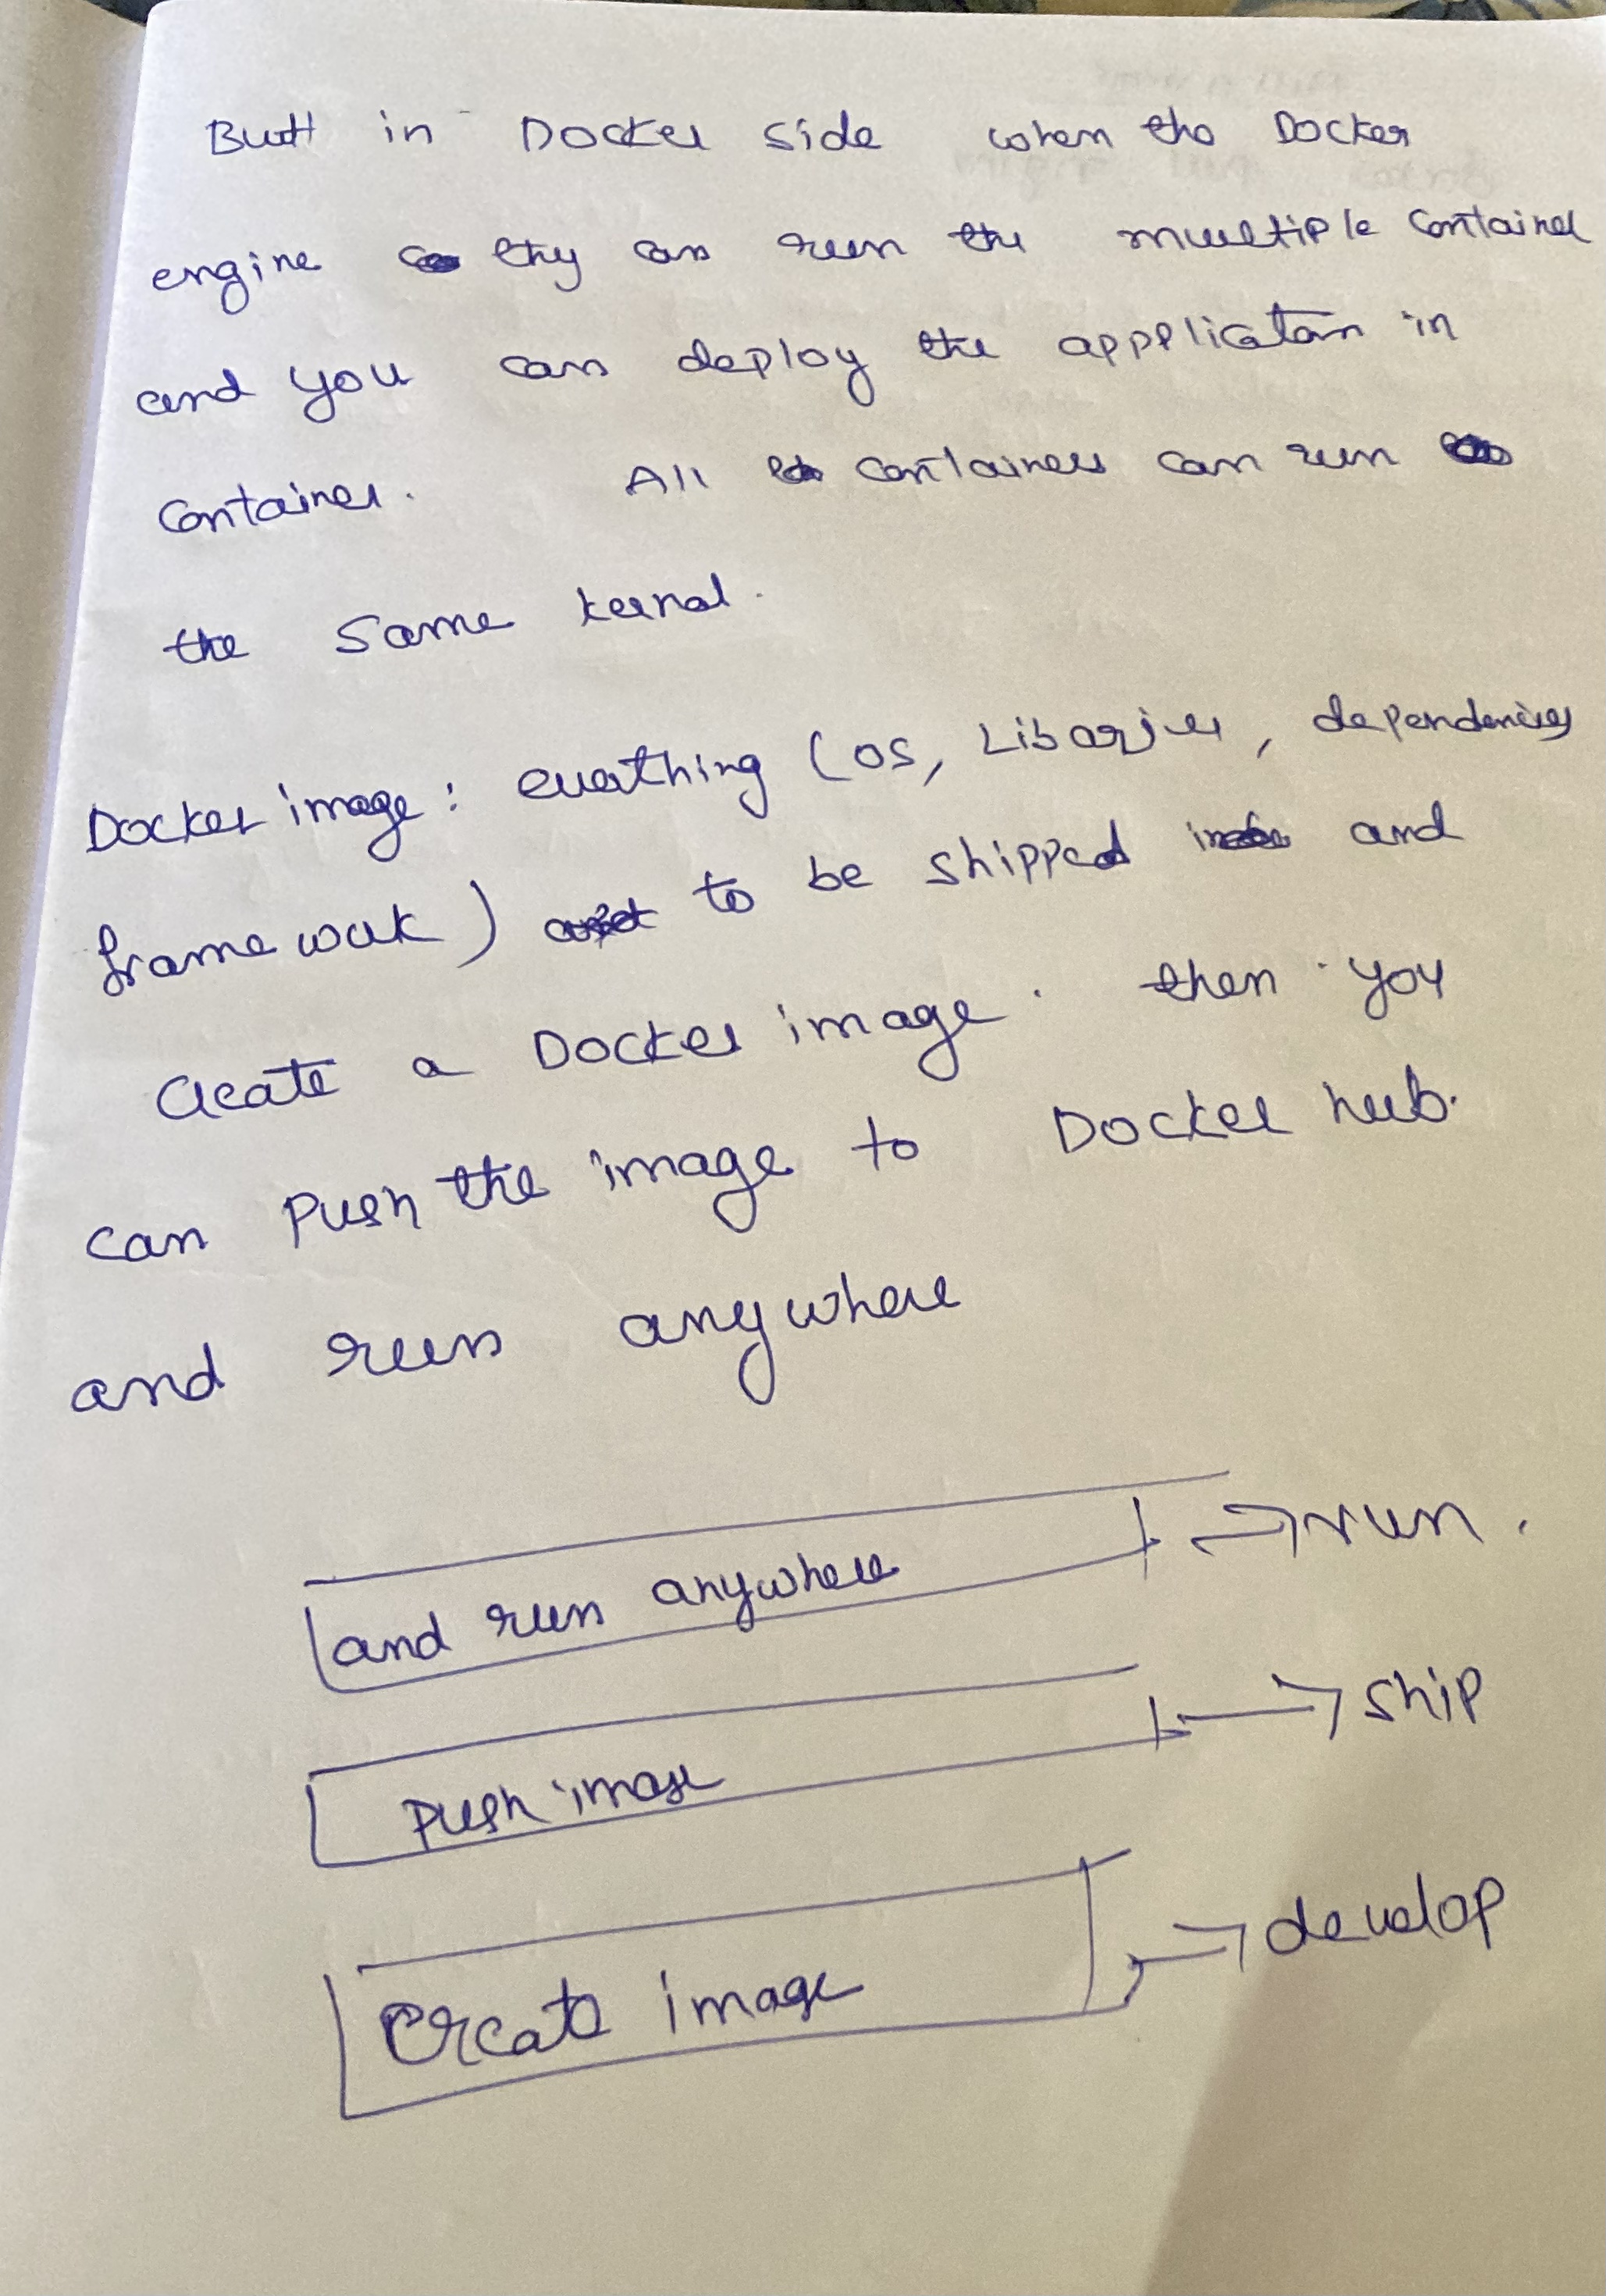 But in Docker side when the Docker
engine they can run the multiple container
and you can deploy the appplication in
container. All containers can run
the same kernal.
Docker image: everthing (OS, Libarries, dependencies
framework) to be shipped and
Create a Docker image. then you
can push the image to Docker hub.
and run anywhere
and run anywhere → run.
push image → ship
Create image → develop